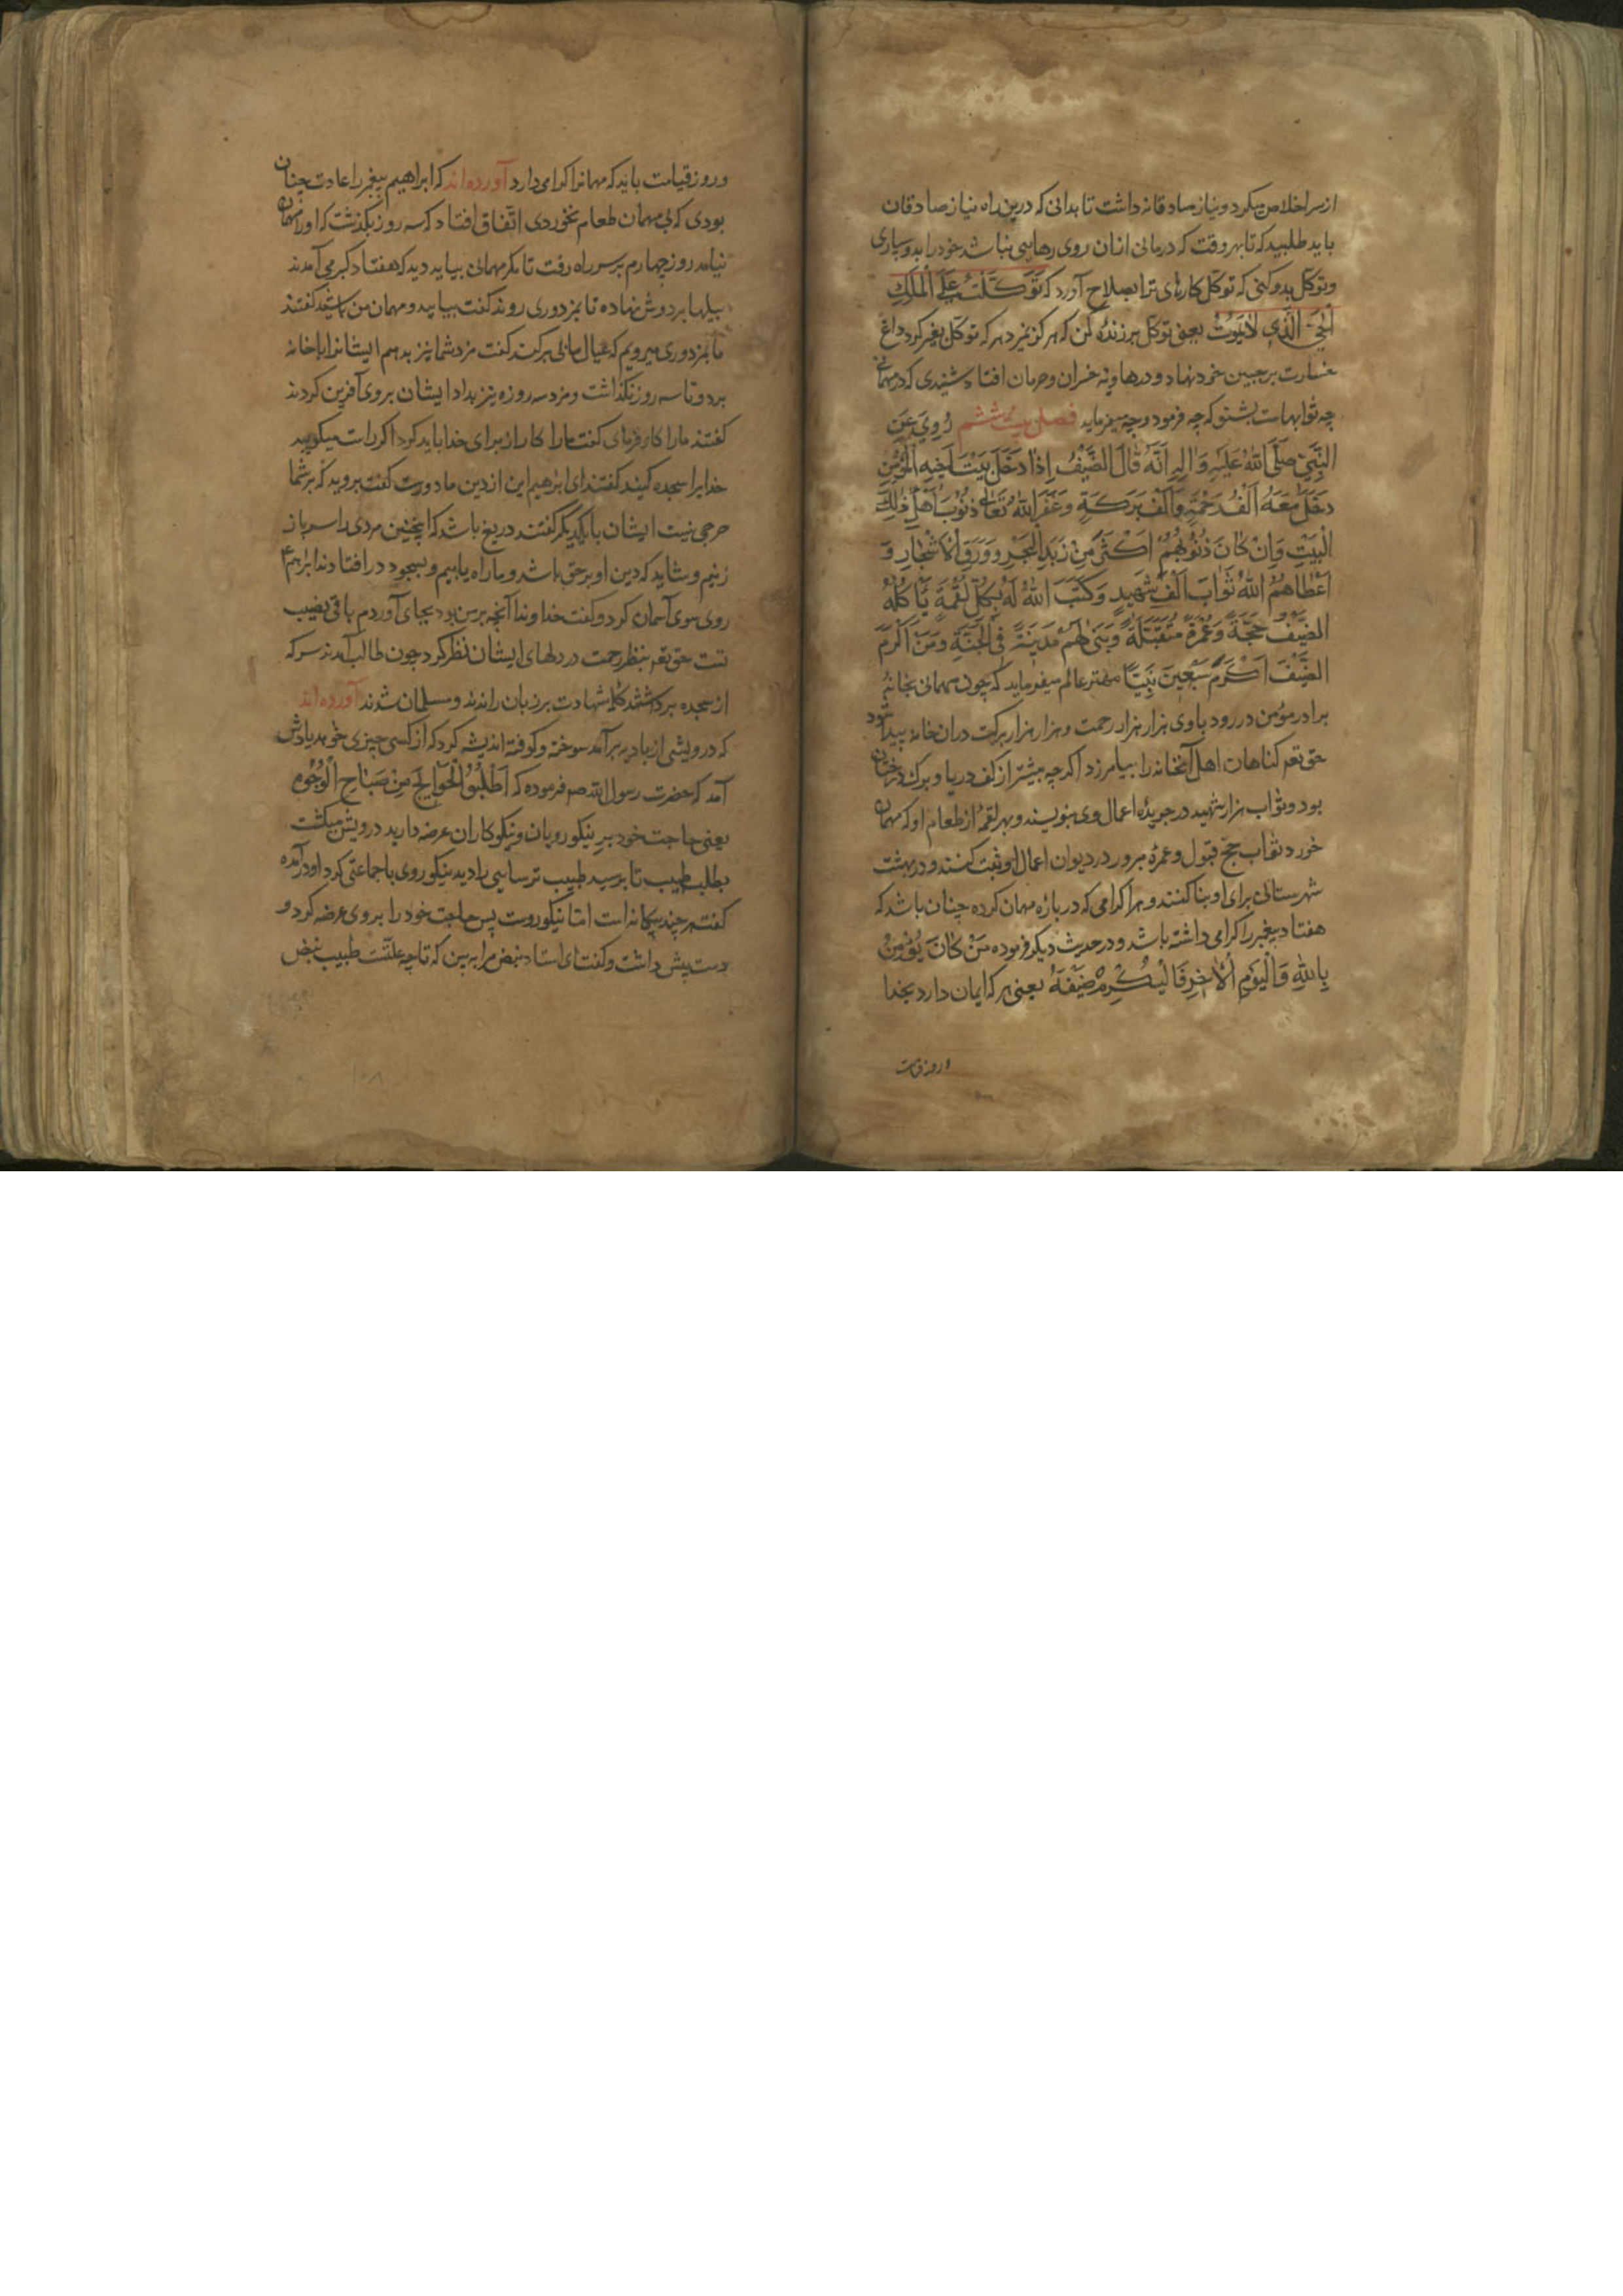 از سر اخلاص میکرد و نیاز صادقانه داشت تا بدانی که درین راه نیاز صادقان
باید طلبید که تا بهر وقت که درمانی ازان روی رهایی باشد خود را بدو سپاری
و توکل بدو کنی که توکل کارهای ترا بصلاح آورد که تَوَكَّلْتُ عَلَى الْمَلِكِ
الْحَيِّ الَّذِي لَا يَمُوتُ یعنی توکل بر زنده کن که هرکز نمیرد هر که توکل بغیر کرد داغ
خسارت بر جبین خود نهاد و در هاویه خسران و حرمان افتاد شنیدی که در مهمانی
چه ثوابهاست بشنو که چه فرمود و چه میفرماید فصل بیست ششم رُوِيَ عَنِ
النَّبِيِّ صَلَّى اللهُ عَلَيْهِ وَالِهِ اَنَّهُ قَالَ الضَّيْفُ اِذَا دَخَلَ بَيْتَ اَخِيهِ الْمُؤْمِنِ
دَخَلَ مَعَهُ اَلْفُ رَحْمَةٍ وَاَلْفُ بَرَكَةٍ وَغَفَرَ اللهُ تَعَالَى ذُنُوبَ اَهْلِ ذٰلِكَ
الْبَيْتِ وَاِنْ كَانَ ذُنُوبُهُمْ اَكْثَرَ مِنْ زَبَدِ الْبَحْرِ وَوَرَقِ الْاَشْجَارِ وَ
اَعْطَاهُمُ اللهُ ثَوَابَ اَلْفِ شَهِيدٍ وَكَتَبَ اللهُ لَهُ بِكُلِّ لُقْمَةٍ يَأْكُلُهُ
الضَّيْفُ حَجَّةً وَعُمْرَةً مُتَقَبَّلَةً وَبَنَى لَهُمْ مَدِينَةً فِي الْجَنَّةِ وَمَنْ اَكْرَمَ
الضَّيْفَ اَكْرَمَ سَبْعِينَ نَبِيًّا مهتر عالم میفرماید که چون مهمانی بخانه
برادر مؤمن در رود باوی هزار هزار رحمت و هزار هزار برکت دران خانه پیدا شود
حق تعه کناهان اهل آنخانه را بیامرزد اکرچه بیشتر از کف دریا و برک درختان
بود و ثواب هزار شهید در جریده اعمال وی بنویسند و بهر لقمهٔ از طعام او که مهمان
خورد ثواب حج قبول و عمرهٔ مبرور در دیوان اعمال او ثبت کنند و در بهشت
شهرستانی برای او بنا کنند و هر اکرامی که در باره مهمان کرده چنان باشد که
هفتاد پیغمبر را کرامی داشته باشد و در حدیث دیکر فرموده مَنْ كَانَ يُؤْمِنُ
بِاللهِ وَالْيَوْمِ الْاٰخِرِ فَالْيُكْرِمْ ضَيْفَهُ یعنی هر که ایمان دارد بخدا
و روز قیامت
و روز قیامت باید که مهمانرا کرامی دارد آورده‌اند که ابراهیم پیغمبر را عادت چنان
بودی که بی مهمان طعام نخوردی اتّفاق افتاد که سه روز بکذشت که او را مهمان
نیامد روز چهارم بر سر راه رفت تا مکر مهمانی بیابد دید که هفتاد کبر می آمدند
بیلها بر دوش نهاده تا بمزدوری روند کفت بیایید و مهمان من باشید کفتند
ما بمزدوری میرویم که عیال ما کفت مزد شما نیز بدهم ایشانرا با خانه
برد و تا سه روز نکذاشت و مزد سه روزه نیز بداد ایشان بر وی آفرین کردند
کفتند ما را کار فرمای کفت ما را کار از برای خدا باید کرد اکر راست میکویید
خدایرا سجده کنید کفتند ای ابرهیم این از دین ما دورست کفت بروید که بر شما
حرجی نیست ایشان با یکدیکر کفتند دریغ باشد که اینچنین مردی را سر باز
زنیم و شاید که دین او بر حق باشد و ما راه یابیم و بسجود در افتادند ابرهم ع
روی سوی آسمان کرد و کفت خداوندا آنچه بر من بود بجای آوردم باقی نصیب
تست حق تعه بنظر رحمت در دلهای ایشان نظر کرد چون طالب آمدند سر که
از سجده برداشتند کلمه شهادت بر زبان راندند و مسلمان شدند آورده‌اند
که درویشی از بادیه برآمد سوخته و کوفته اندیشه کرد که از کسی چیزی خوهد یادش
آمد که حضرت رسول الله صم فرموده که اُطْلُبُوا الْحَوَآئِجَ مِنْ صَبَاحِ الْوُجُوهِ
یعنی حاجت خود بر نیکو رویان و نیکو کاران عرضه دارید درویش میکشت
بطلب طبیب تا برسید طبیب ترسایی را دید نیکو روی با جماعتی کرد او درآمده
کفت هر چند بیکانه است امّا نیکو روست پس حاجت خود را بر وی عرضه کرد و
دست پیش داشت و کفت ای استاد نبض مرا ببین که تا چه علّتست طبیب نبض